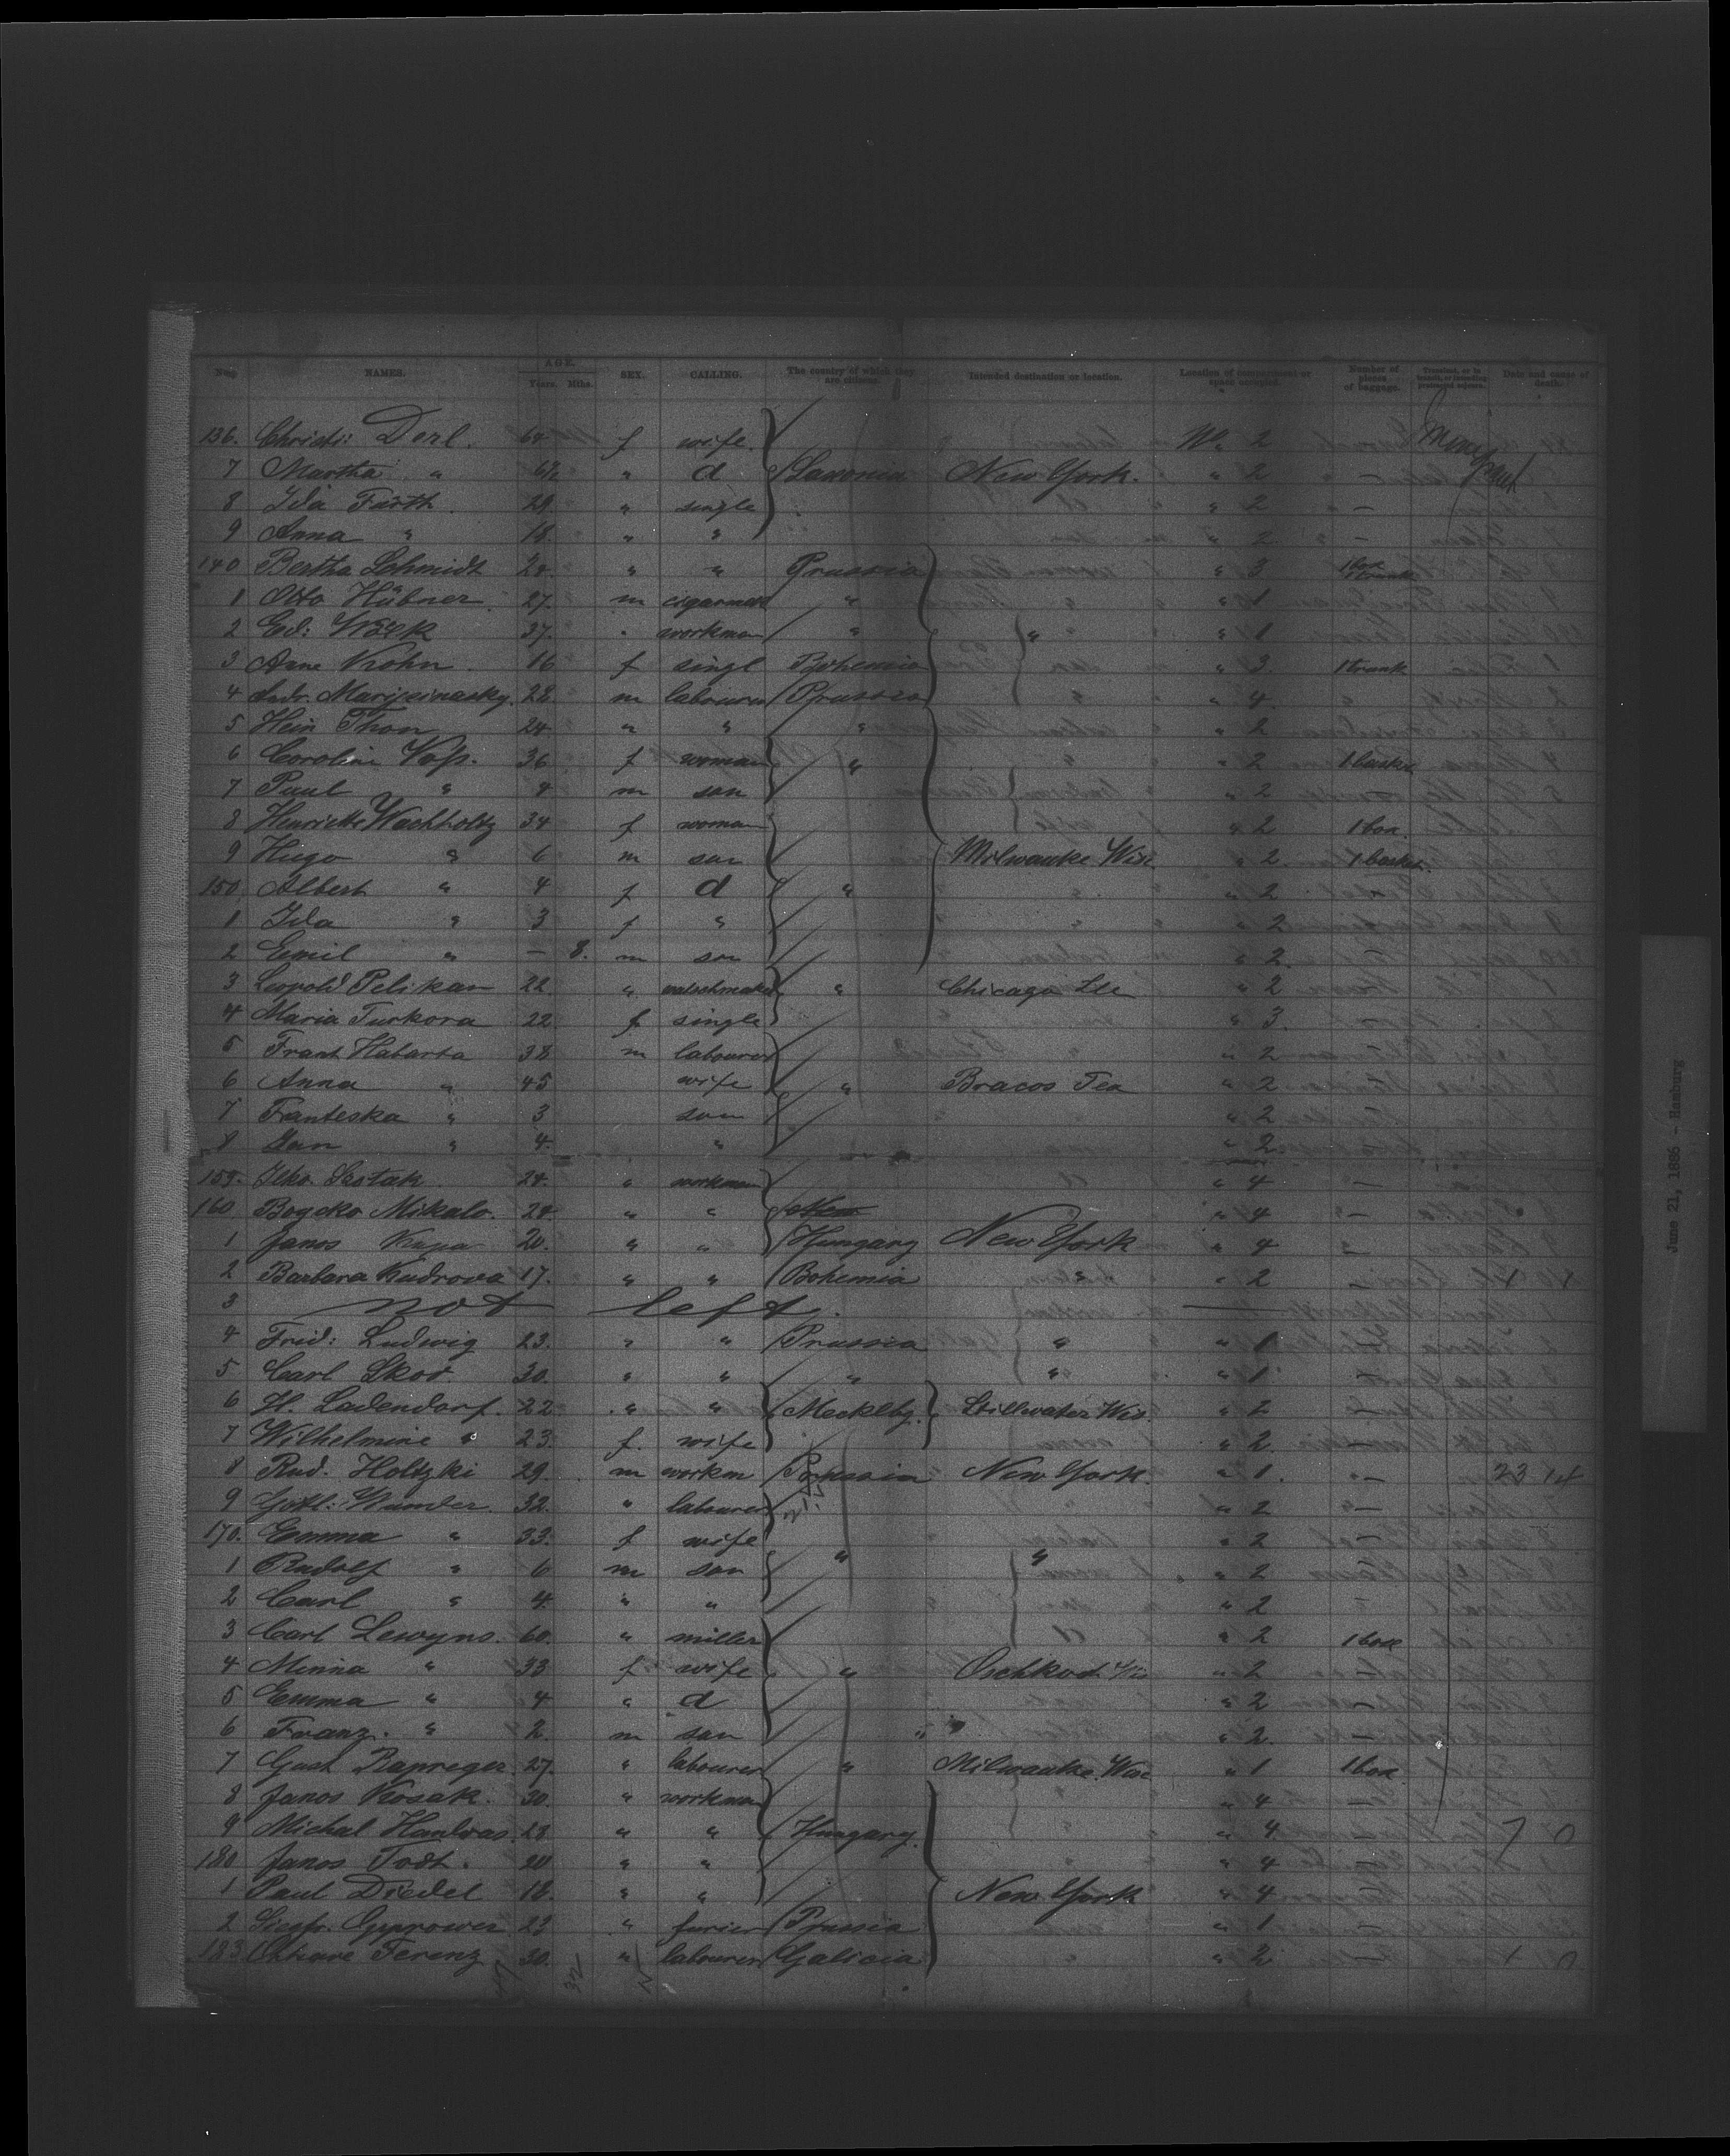 Nos. NAMES. AGE. Years. Mths. SEX. CALLING. The country of which they are citizens. Intended destination or location. Location of compartment or space occupied. Number of pieces of baggage. Transient, or in transit, or intending protracted sojourn. Date and cause of death.
136. Christi: Derl. 64 f wife No 2
7 Martha " " d Saxonia New York. " 2 —
8 Ida Fürth 29 " single " 2 —
9 Anna " 18. " " " 2 —
140 Bertha Schmidt 24. " " Prussia " 3
1 Otto Hübner 27. m " " 1
2 Ed: 37. " workman " " " 1
3 Anne Krohn 16 f singl Bohemia " 3. 1 trunk
4 28 m labourer Prussia " 4
5 Hein Thon 24 " " " " 2
6 Carolin Voss. 36 f woman " " 2 1 basket
7 Paul " 9 m son " 2
8 Henriette Wachholtz 34 f woman " 2 1 box.
9 Hugo " 6 m son Milwauke Wisc " 2 1 basket.
150 Albert " 4 f d " " 2
1 Ida " 3 f " " 2
2 Emil " — 8. m son " 2
3 Leopold Pelikan 22 " " Chicago " 2
4 Maria Turkova 22 f single " 3.
5 Frant Habarta 38 m labourer " 2
6 Anna " 45 wife " Bracos Tex " 2
7 Franteska " 3 son " 2
8 Jan " 4. " " 2
159. Sastak 24. " workman " 4
160 Mikalo. 24 " " " 4 —
1 Janos 20. " " Hungary New York " 4 —
2 Barbara Kudrova 17. " " Bohemia " " 2 —
3 not left.
4 Frid: Ludwig 23. " " Prussia " " 1 —
5 Carl Skov. 30. " " " " " 1 —
6 H. Ladendorf. 22 " " Mecklbg. Stillwater Wis. " 2 —
7 Wilhelmine " 23. f. wife " 2. —
8 Rud. Holtzki 29. m workm Prussia New York. " 1. — 23 14
9 Gottl: 32. " labourer " 2 —
170. Emma " 33. f wife " 2 —
1 Rudolf " 6 m son " " " 2 —
2 Carl " 4. " " " 2 —
3 Carl Lewyns. 60. " miller " 2 1 box
4 Minna " 33 f wife " Oschkosh Wis " 2 —
5 Emma " 4 " d " 2 —
6 Franz. " 2. m son " " 2. —
7 Gust 27. " labourer " Milwauke. Wisc " 1 1 box
8 Janos Kosak. 30. " workman " 4 —
9 Michal 28. " " Hungary. " 4 — 7 0
180 Janos Todt. 20 " " " 4 —
1 Paul Diedel 18. " " New York " 4 —
2 Siegfr. 23 " furier Prussia " 1 —
183 Ferenz 30. " labourer Galicia " 2 — 1 0
June 21, 1886 - Hamburg